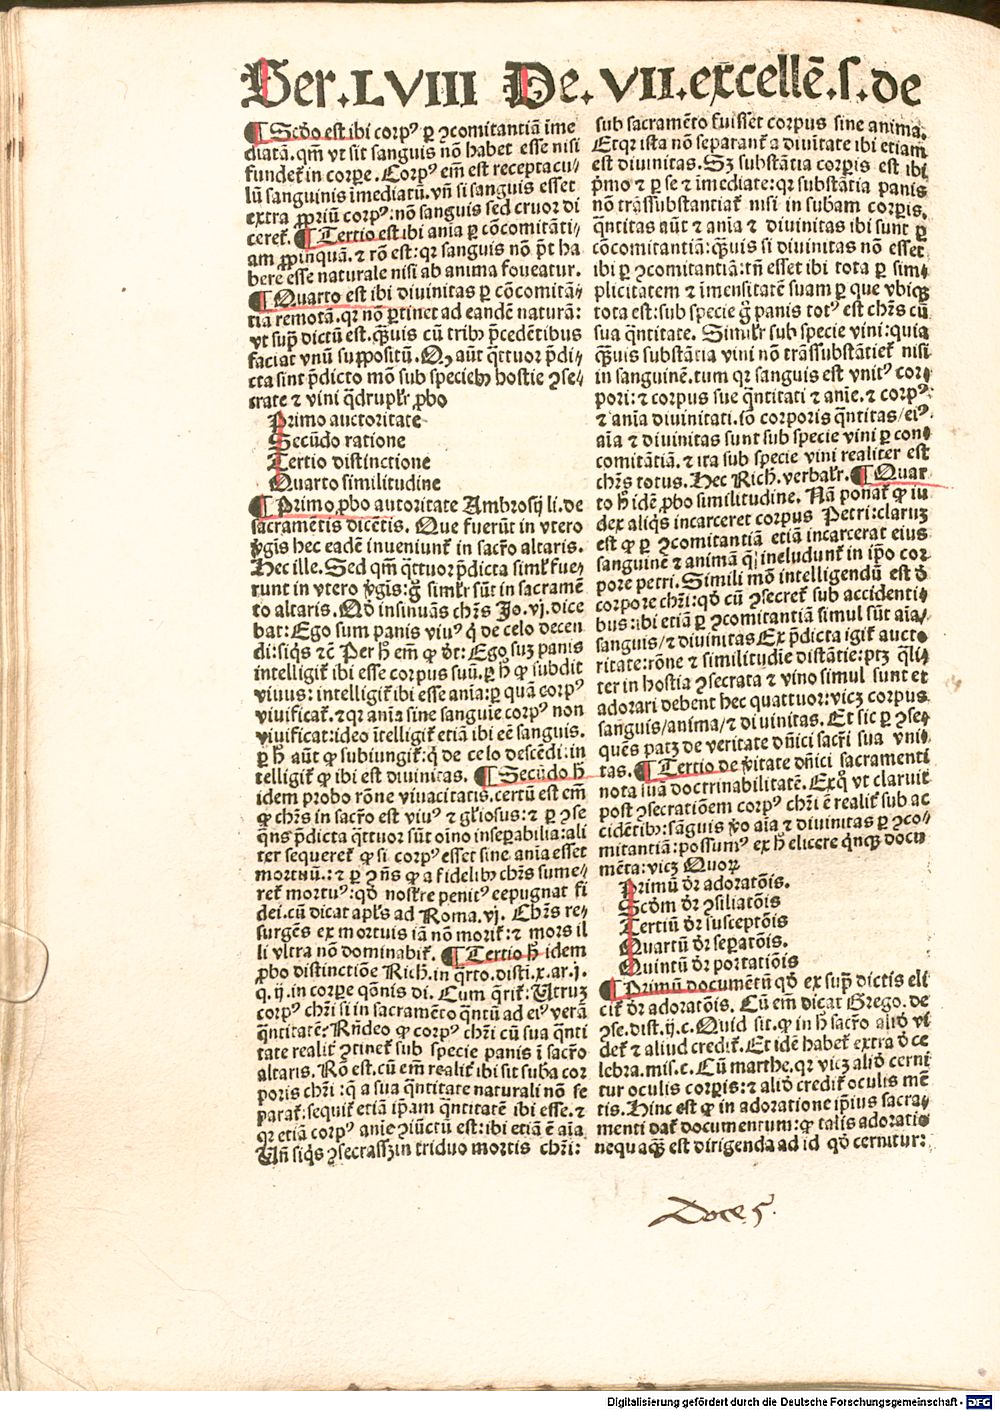 Ser.LVIII De.VII.excellē.s.de
¶ Scḋo est ibi corpꝰ ꝑ ꝯcomitantiā ime
diatā.qm̄ vt sit sanguis nō habet esse nisi
fundet᷑ in corꝑe.Corpꝰ em̄ est receptacu⸗
lū sanguinis īmediatū.vn̄ si sanguis esset
extra ꝓpriū corpꝰ:nō sanguis sed cruor di
ceret᷑.¶ Tertio est ibi aīa ꝑ cōcomitāti⸗
am ꝓpinquā.⁊ rō est:qꝛ sanguis nō pōt ha
bere esse naturale nisi ab anima foueatur.
¶ Quarto est ibi diuinitas ꝑ cōcomitā⸗
tiā remotā.qꝛ nō ꝑtinet ad eandē naturā:
vt supͣ dictū est.qͣuis cū tribꝰ p̄cedētibus
faciat vnū suppositū.Qꝫ aūt qͣttuor p̄di⸗
cta sint p̄dicto mō sub speciebꝫ hostie ꝯse⸗
crate ⁊ vini qͣdrupłr ꝓbo
Primo auctoritate
Secūdo ratione
Tertio distinctione
Quarto similitudine
¶ Primo ꝓbo autoritate Ambrosij li.de
sacramētis dicētis. Que fuerūt in vtero
v̄gīs hec eadē inueniunt᷑ in sacr̄o altaris.
Hec ille. Sed qm̄ qͣttuor p̄dicta simłr fue⸗
runt in vtero v̄gīs:g̊ simłr sūt in sacramē
to altaris. Qḋ insinuās chr̄s Jo.vj.dice
bat:Ego sum panis viuꝰ qͥ de celo decen
di:siqͥs ⁊c̄ Per h̄ em̄ ꝙ dt:Ego suꝫ panis
intelligit᷑ ibi esse corpus suū.ꝑ h̄ ꝙ subdit
viuus:intelligit᷑ ibi esse aīa:ꝑ quā corpꝰ
viuificat᷑.⁊qꝛ anīa sine sanguīe corpꝰ non
viuificat:ideo ītelligit᷑ etiā ibi eē sanguis.
ꝑ h̄ aūt ꝙ subiungit᷑:qͥ de celo descēdi:in
telligit᷑ ꝙ ibi est diuinitas. ¶ Secūdo h̄
idem probo rōne viuacitatis.certū est em̄
ꝙ chr̄s in sacr̄o est viuꝰ ⁊ gl̄iosus:⁊ ꝑ ꝯse
qͣns p̄dicta qͣttuor sūt oīno inseꝑabilia:ali
ter sequeret᷑ ꝙ si corpꝰ esset sine anīa esset
mortuū.:⁊ ꝑ ꝯn̄s ꝙ a fidelibꝰ chr̄s sume⸗
ret᷑ mortuꝰ:qḋ nostre penitꝰ eepugnat fi
dei.cū dicat apłs ad Roma.vj. Chr̄s re⸗
surgēs ex mortuis iā nō morit᷑:⁊ mors il
li vltra nō dominabit᷑. ¶ Tertio h̄ idem
ꝓbo distinctiōe Rich.in qͣrto.disti.x.ar.j.
q.ij.in corꝑe qōnis di. Cum qͥrit᷑:Utruꝫ
corpꝰ chr̄i sit in sacramēto qͣntū ad eiꝰ verā
qͣntitatē? Rn̄deo ꝙ corpꝰ chr̄i cū sua qͣnti
tate realit᷑ ꝯtinet᷑ sub specie panis ī sacr̄o
altaris. Rō est.cū em̄ realit᷑ ibi sit suba cor
poris chr̄i:qͥ a sua qͣntitate naturali nō se
parat᷑:sequit᷑ etiā ip̄am qͣntitatē ibi esse.⁊
qꝛ etiā corpꝰ anīe ꝯiūctū est:ibi etiā ē aīa
Un̄ siqͥs ꝯsecrasseꝫ in triduo mortis chr̄i:
sub sacramēto fuisset corpus sine anima.
Etqꝛ ista nō separant᷑ a diuītate ibi etiam
est diuinitas. Sꝫ substātia corꝑis est ibi
p̄mo ⁊ ꝑ se ⁊ īmediate:qꝛ substātia panis
nō trāssubstantiat᷑ nisi in subam corꝑis.
qͣntitas aūt ⁊ anīa ⁊ diuinitas ibi sunt ꝑ
cōcomitantiā:qͣuis si diuinitas nō esset
ibi ꝑ ꝯcomitantiā:tn̄ esset ibi tota ꝑ sim⸗
plicitatem ⁊ īmensitatē suam ꝑ que vbiqꝫ
tota est:sub specie g̊ panis totꝰ est chr̄s cū
sua qͣntitate. Similr̄ sub specie vini:quia
qͣuis substātia vini nō trāssubstātiet᷑ nisi
in sanguinē.tum qꝛ sanguis est vnitꝰ cor⸗
pori:⁊ corpus sue qͣntitati ⁊ anīe.⁊ corpꝰ
⁊ anīa diuinitati.iō corporis qͣntitas/eiꝰ
aīa ⁊ diuinitas sunt sub specie vini ꝑ con⸗
comitātiā.⁊ ita sub specie vini realiter est
chr̄s totus. Hec Rich.verbałr.¶ Quar
to h̄ idē ꝓbo similitudine. Nā ponat᷑ ꝙ iu
dex aliqͥs incarceret corpus Petri:claruꝫ
est ꝙ ꝑ ꝯcomitantiā etiā incarcerat eius
sanguinē ⁊ animā qͥ ineludunt᷑ in ip̄o cor
pore petri. Simili mō intelligendū est ḋ
corpore chr̄i:qḋ cū ꝯsecret᷑ sub accidenti⸗
bus:ibi etiā ꝑ ꝯcomitantiā simul sūt aīa/
sanguis/⁊ diuinitas Ex p̄dicta igit᷑ aucto
ritate:rōne ⁊ similitudie distātie:ptꝫ qͣli⸗
ter in hostia ꝯsecrata ⁊ vino simul sunt et
adorari debent hec quattuor:vicꝫ corpus
sanguis/anima/⁊ diuinitas. Et sic ꝑ ꝯse⸗
quēs patꝫ de veritate dn̄ici sacr̄i sua vni⸗
tas.¶ Tertio de v̄itate dn̄ici sacramenti
nota suā doctrinabilitatē. Exqͦ vt claruit
post ꝯsecratiōem corpꝰ chr̄i ē realit᷑ sub ac
cidētibꝫ:sāguis v̊o aīa ⁊ diuinitas ꝑ ꝯco⸗
mitantiā:possumꝰ ex h̄ elicere qͥnqꝫ docu
mēta:vicꝫ Quoꝝ
Primū dr̄ adoratōis.
Scōm dr̄ ꝯsiliatōis
Tertiū dr̄ susceptōis
Quartū dr̄ seꝑatōis.
Quintū dr̄ portatiōis
¶ Primū documētū qḋ ex supͣ dictis eli
cit᷑ dr̄ adoratōis. Cū em̄ dicat Grego.de
ꝯse.dist.ij.c.Quid sit.ꝙ in h̄ sacr̄o aliḋ vi
det᷑ ⁊ aliud credit᷑.Et idē habet᷑ extra ḋ ce
lebra.mis.c. Cū marthe.qꝛ vicꝫ aliḋ cerni
tur oculis corꝑis:⁊ aliḋ credit᷑ oculis mē
tis. Hinc est ꝙ in adoratione ip̄ius sacra⸗
menti dat᷑ documentum:ꝙ talis adoratio
nequaqͣꝫ est dirigenda ad id qḋ cernitur:
Digitalisierung gefördert durch die Deutsche Forschungsgemeinschaft - DFG